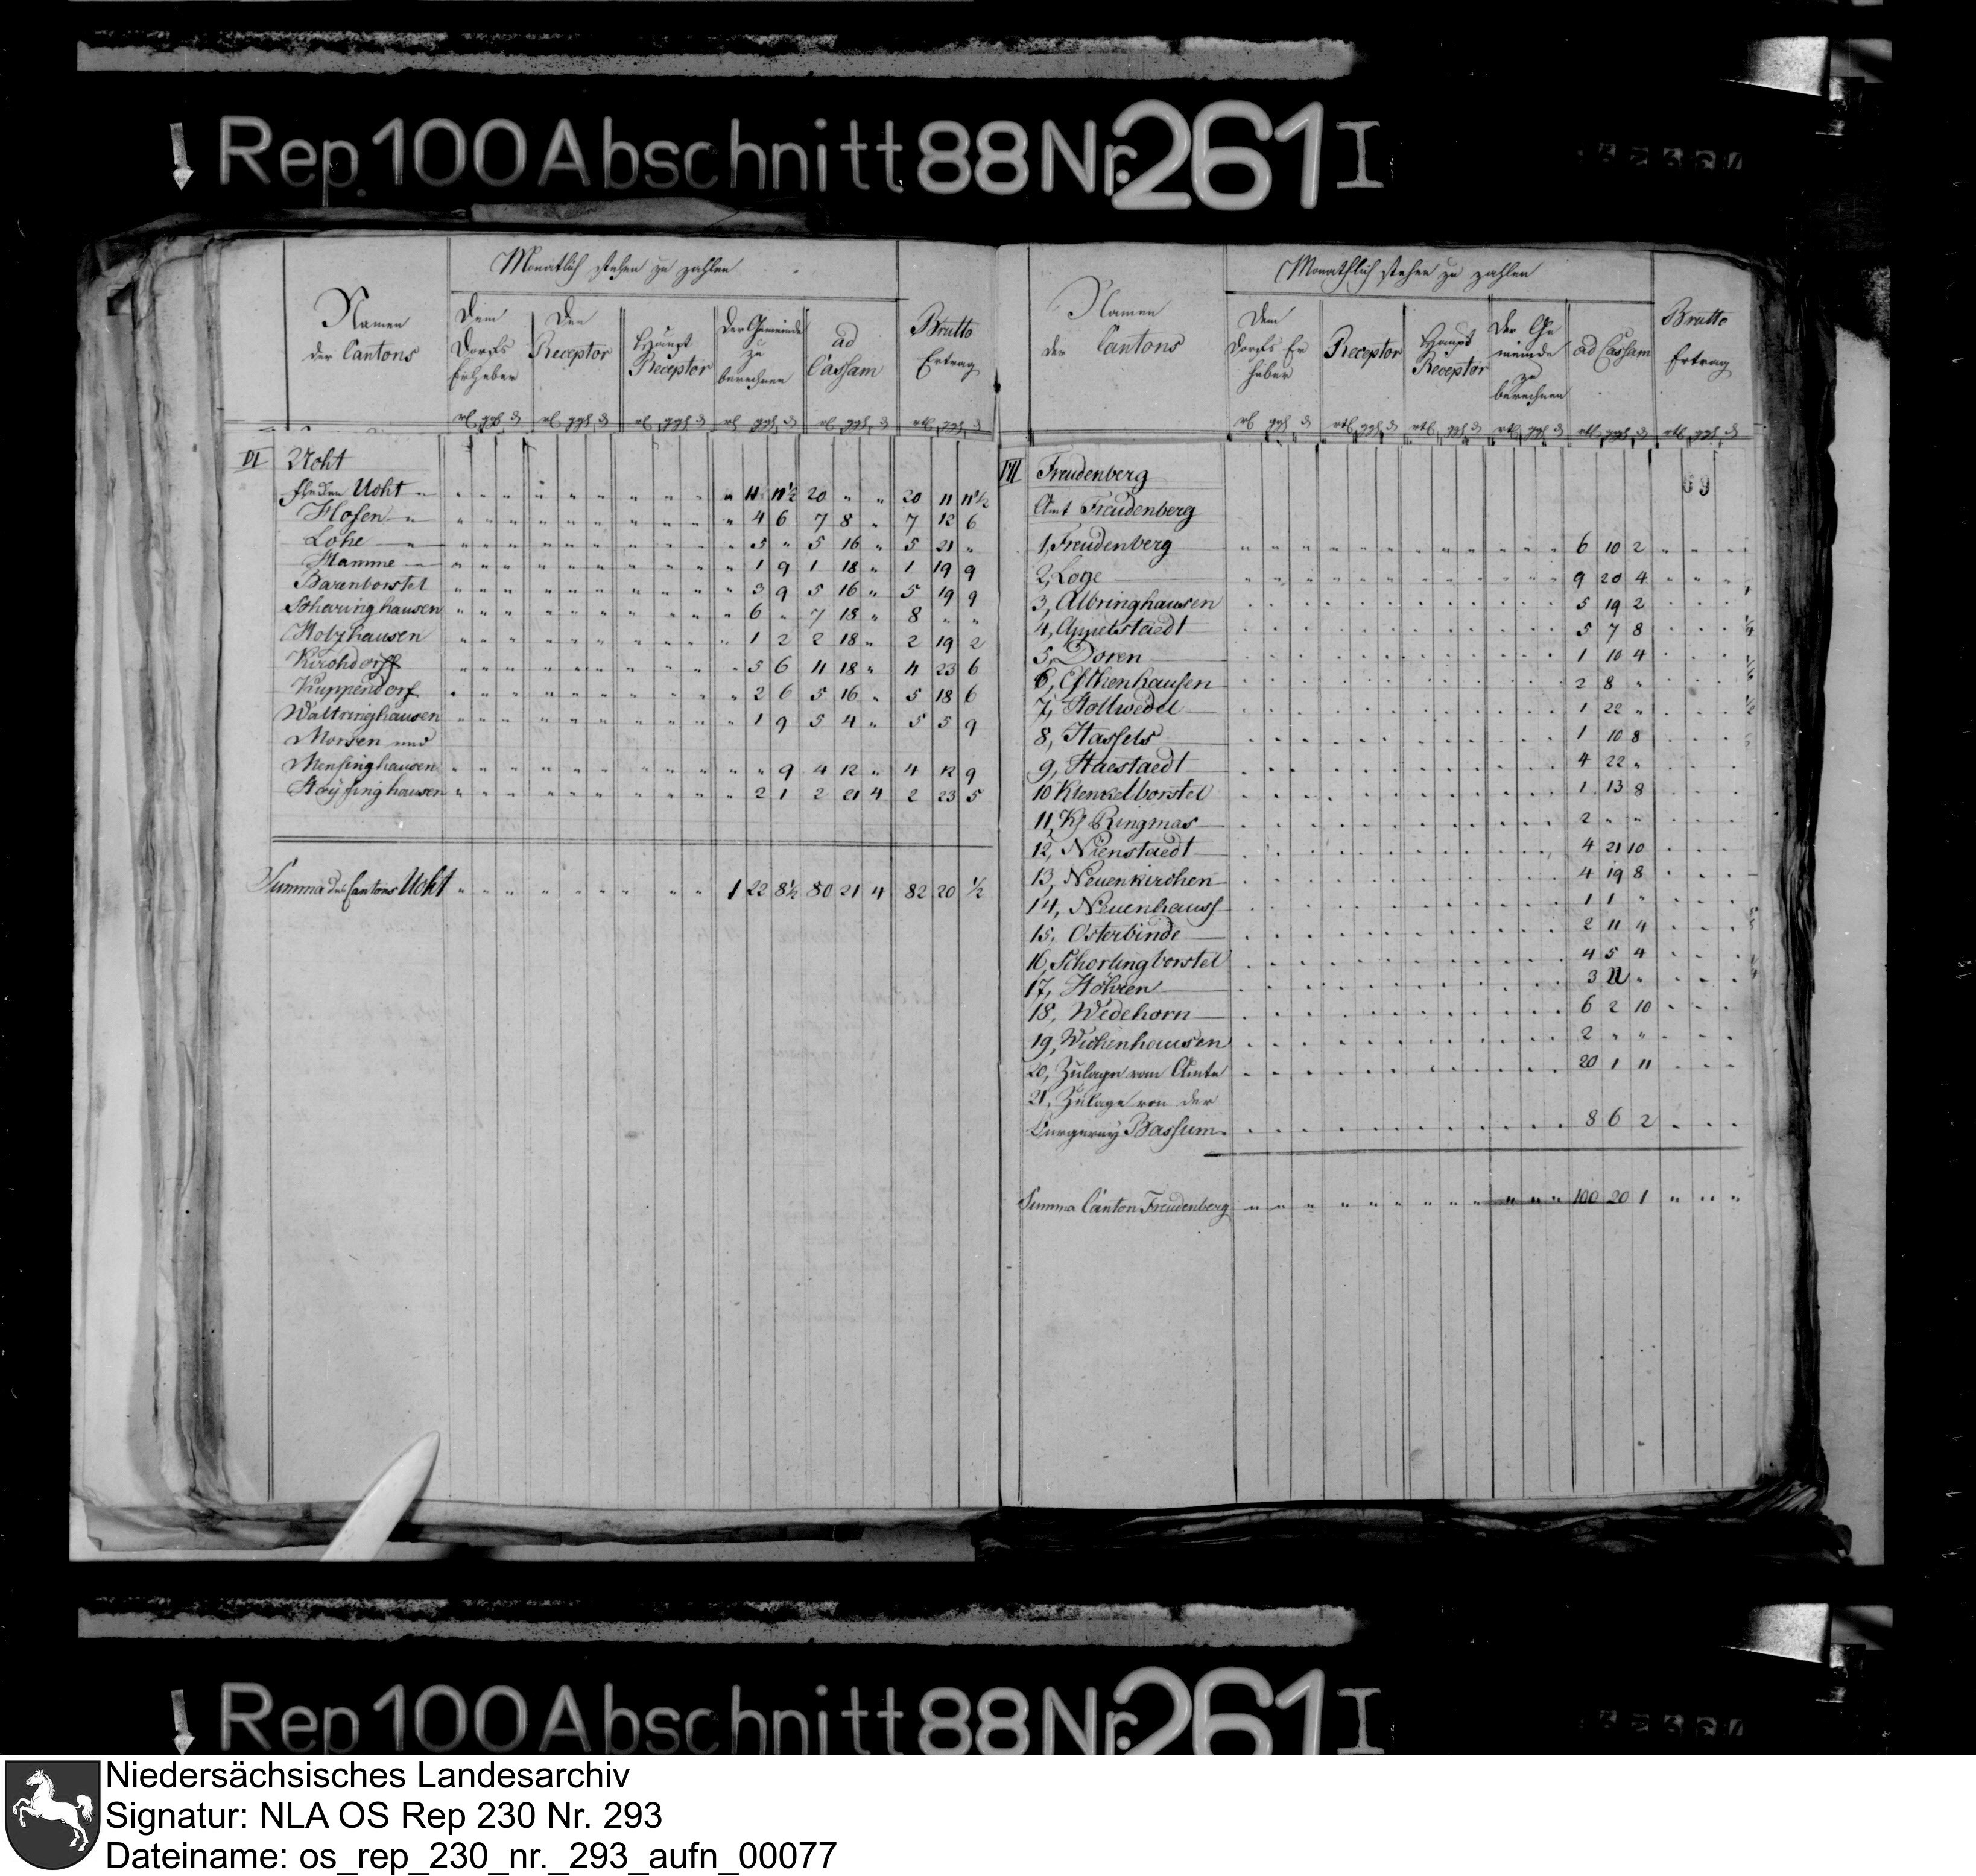 Rep. 100 Abschnitt 88 Nr. 261 I
Monatlich stehen zu zahlen
Namen der Cantons
Dem Dorfs Erheber
Den Receptor
Haupt Receptor
Der Gemeinde zu berechnen
ad Cassam
Brutto Ertrag
VI Ucht
Flecken Ucht " 11 11½ 20 " " 20 11 11½
Hosen " 4 6 7 8 " 7 12 6
Lohe " 5 " 5 16 " 5 21 "
Hamme " 1 9 1 18 " 1 19 9
Barenborstel " 3 9 5 16 " 5 19 9
Scharinghausen " 6 " 7 18 " 8 " "
Holzhausen " 1 2 2 18 " 2 19 2
Kirchdorff " 5 6 4 18 " 4 23 6
Kuppendorf " 2 6 5 16 " 5 18 6
Waltringhausen " 1 9 5 4 " 5 5 9
Morsen und
Mensinghausen " " 9 4 12 " 4 12 9
Hoÿsinghausen " 2 1 2 21 4 2 23 5
Summa des Cantons Ucht 1 22 8½ 80 21 4 82 20 ½
Monathlich stehen zu zahlen
Namen der Cantons
Dem Dorfs Erheber
Receptor
Haupt Receptor
Der Gemeinde zu berechnen
ad Cassam
Brutto Ertrag
69
VII Freudenberg
Amt Freudenberg
1, Freudenberg 6 10 2
2, Loge 9 20 4
3, Albringhausen 5 19 2
4, Appelstaedt 5 7 8
5, Doren 1 10 4
6, Eschenhausen 2 8 "
7, Hollwedel 1 22 "
8, Hassels 1 10 8
9, Haestaedt 4 22 "
10 Klenkelborstel 1 13 8
11, Kl Ringmar 2 " "
12, Nienstaedt 4 21 10
13, Neuenkirchen 4 19 8
14, Neuenhauss 1 1 "
15, Osterbinde 2 11 4
16, Schorlingborstel 4 5 4
17, Stöhren 3 "
18, Wedehorn 6 2 10
19, Wichenhausen 2 " "
20, Zulage vom Amte 20 1 11
21, Zulage von der
Bassum 8 6 2
Summa Canton Freudenberg 100 20 1
Rep. 100 Abschnitt 88 Nr. 261 I
Niedersächsisches Landesarchiv
Signatur: NLA OS Rep 230 Nr. 293
Dateiname: os_rep_230_nr._293_aufn_00077